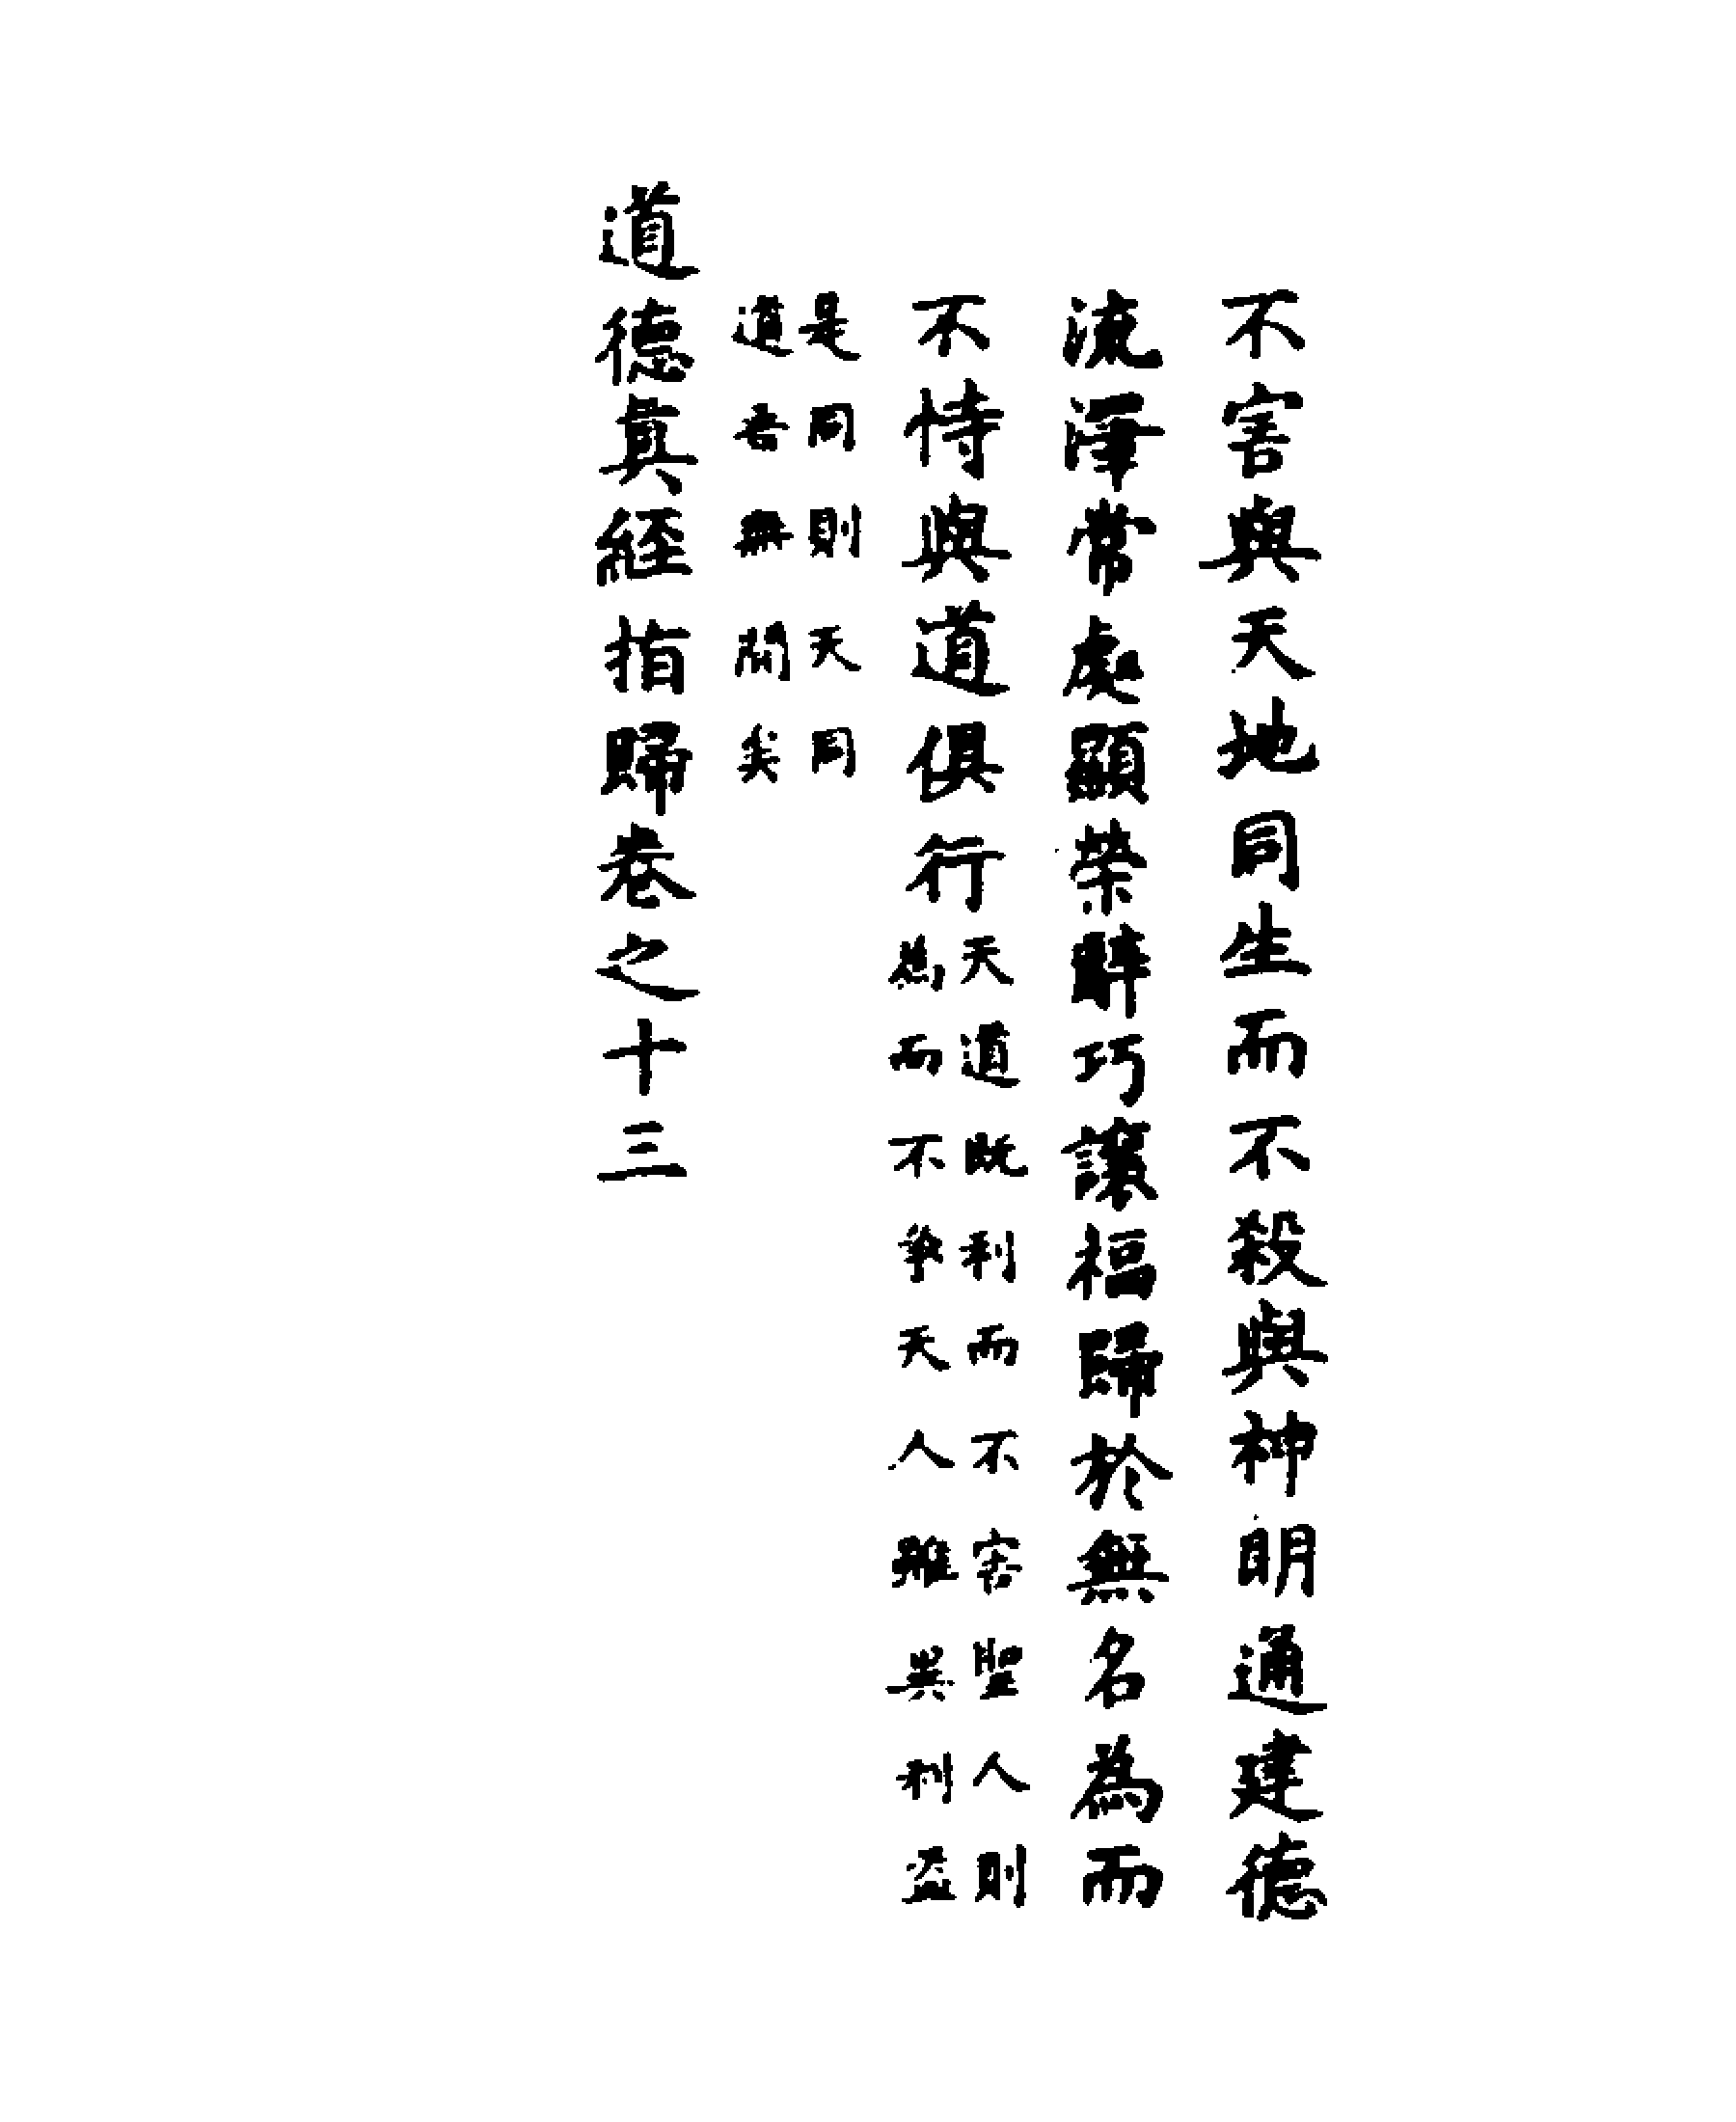 不害與天地同生而不殺與神明通建德
流澤常處顯榮辭巧讓福歸於無名為而
不恃與道俱行
天道既利而不害聖人則
為而不爭天人雖異利益
是同則天同
道吾無間矣
道德真經指歸卷之十三